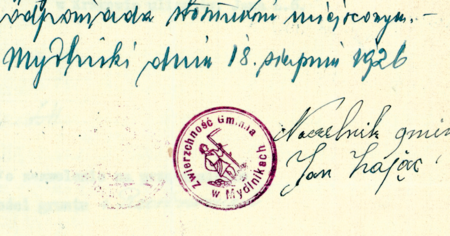 odpowiada stosunkom miejscowym.-
Mydlniki dnia 18. sierpnia 1926
Zwierzchność Gminna
w Mydlnikach
Naczelnik gmi
Jan Zając